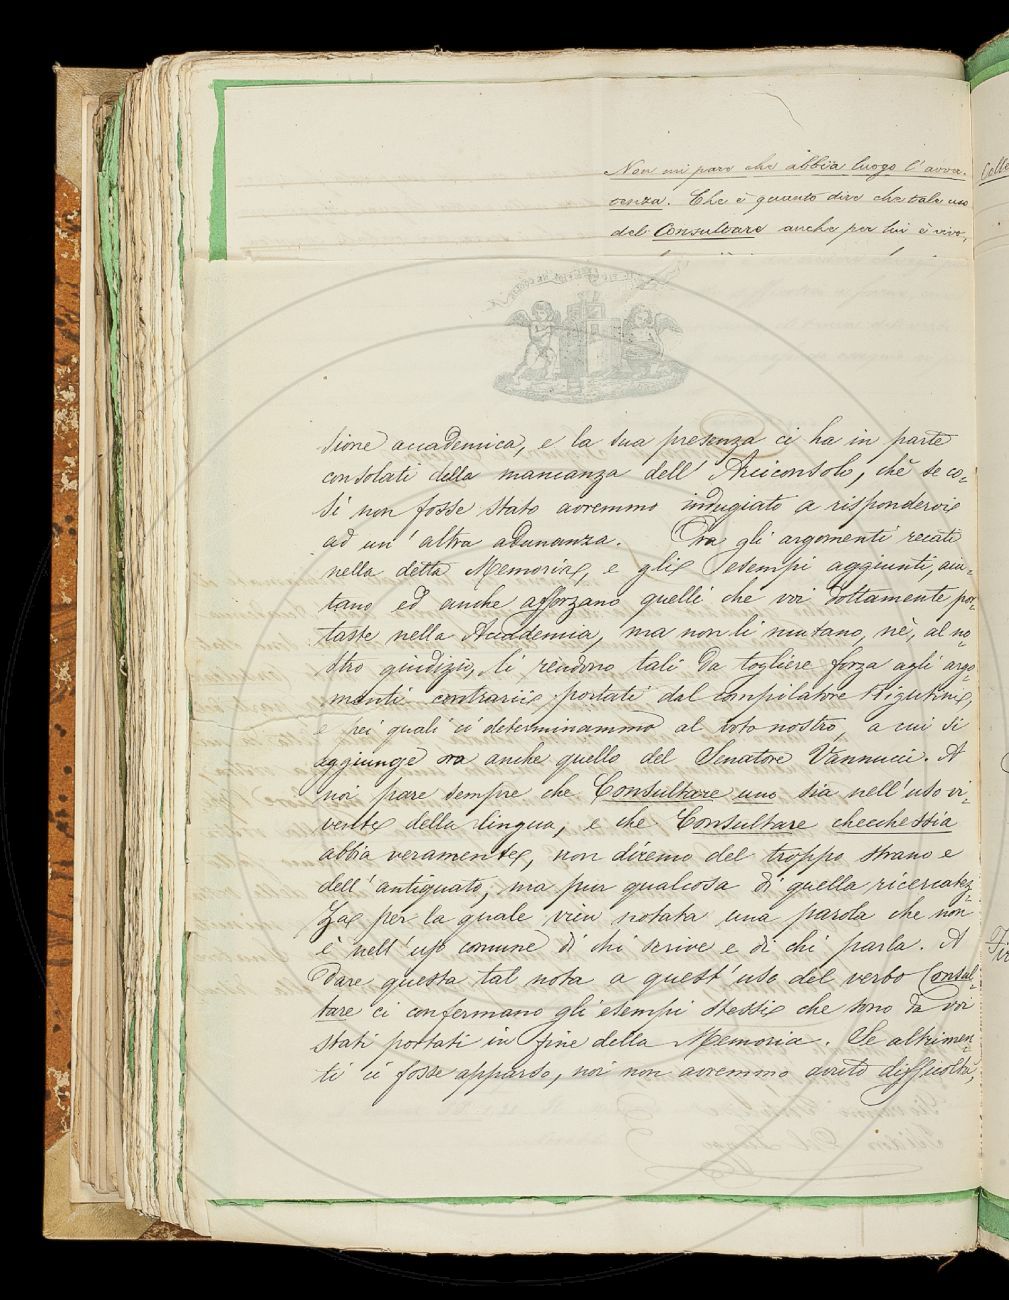 Non mi pare che abbia luogo l'avver-
tenza. Che è quanto dire che tale uso
del Consultare anche per lui è vivo,
sione accademica, e la sua presenza ci ha in parte
consolati della mancanza dell'Arciconsolo, chè se co-
sì non fosse stato avremmo indugiato a rispondervi
ad un'altra adunanza. Ora gli argomenti recati
nella detta Memoria, e gli esempi aggiunti, aiu-
tano ed anche afforzano quelli che voi dottamente por-
taste nella Accademia, ma non li mutano, nè, al no-
stro giudizio, li rendono tali da togliere forza agli argo-
menti contrarii portati dal compilatore Rigutini,
e pei quali ci determinammo al voto nostro, a cui si
aggiunge ora anche quello del Senatore Vannucci. A
noi pare sempre che Consultare uno sia nell'uso vi-
vente della lingua, e che Consultare checchessia
abbia veramente, non diremo del troppo strano e
dell'antiquato, ma pur qualcosa di quella ricercatez-
za per la quale vien notata una parola che non
è nell'uso comune di chi scrive e di chi parla. A
dare questa tal nota a quest'uso del verbo Consul-
tare ci confermano gli esempi stessi che sono da voi
stati portati in fine della Memoria. Se altrimen-
ti ci fosse apparso, noi non avremmo avuto difficoltà,